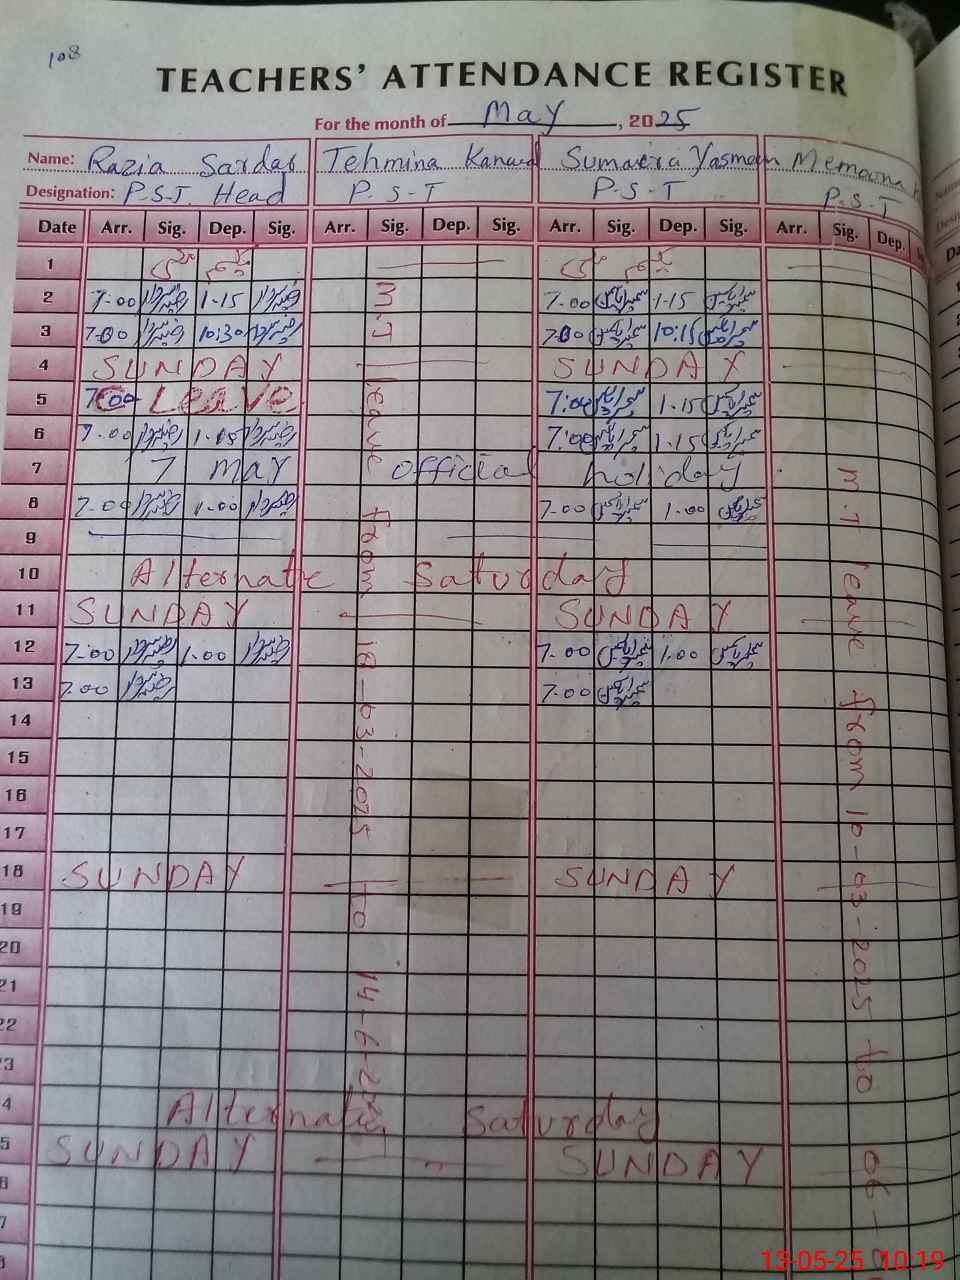 108
TEACHERS' ATTENDANCE REGISTER
For the month of May, 2025
Name: Razia Sardar Tehmina Kanwal Sumaira Yasmeen Memoona
Designation: P.S.T. Head P.S.T P.S.T P.S.T
Date Arr. Sig. Dep. Sig. Arr. Sig. Dep. Sig. Arr. Sig. Dep. Sig. Arr. Sig. Dep.
1
2 7.00 1.15 7.00 1.15
3 7.00 10:30 7.00 10:15
4 SUNDAY SUNDAY
5 7.00 C Leave 7.00 1.15
6 7.00 1.15 7.00 1.15
7 7 May official holiday
8 7.00 1.00 7.00 1.00
9
10 Alternate Saturday
11 SUNDAY SUNDAY
12 7.00 1.00 7.00 1.00
13 7.00 7.00
14
15
16
17
18 SUNDAY SUNDAY
19
20
21
22
23
24 Alternate Saturday
25 SUNDAY SUNDAY
M.T leave from 18-03-2025 to 14-6-2025
M.T leave from 10-03-2025 to 06-
13-05-25 10:19